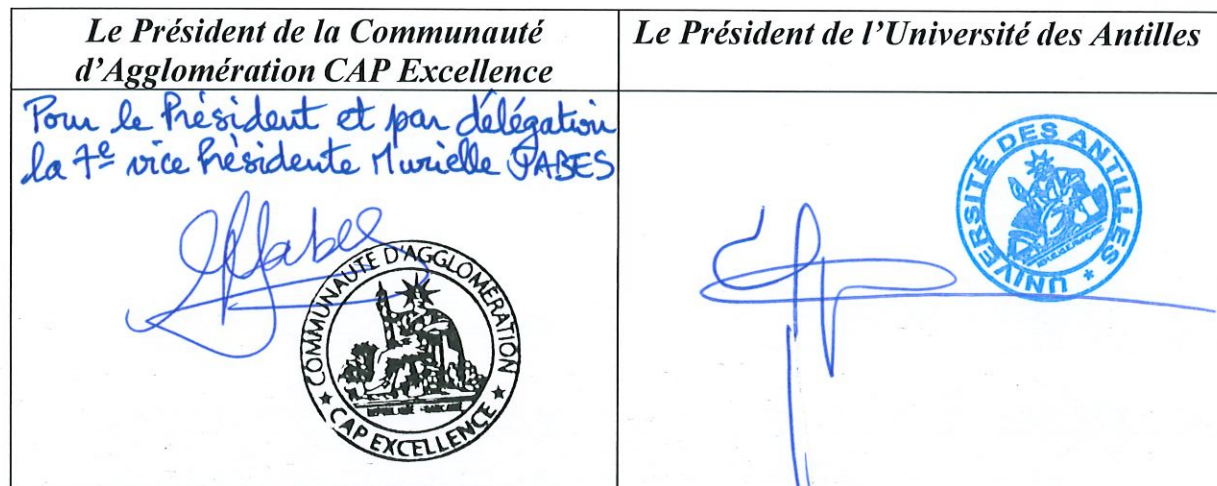 Le Président de la Communauté
d'Agglomération CAP Excellence
Le Président de l'Université des Antilles
Pour le Président et par délégation
la 7e vice Présidente Murielle JABES
COMMUNAUTÉ D'AGGLOMÉRATION
CAP EXCELLENCE
UNIVERSITÉ DES ANTILLES